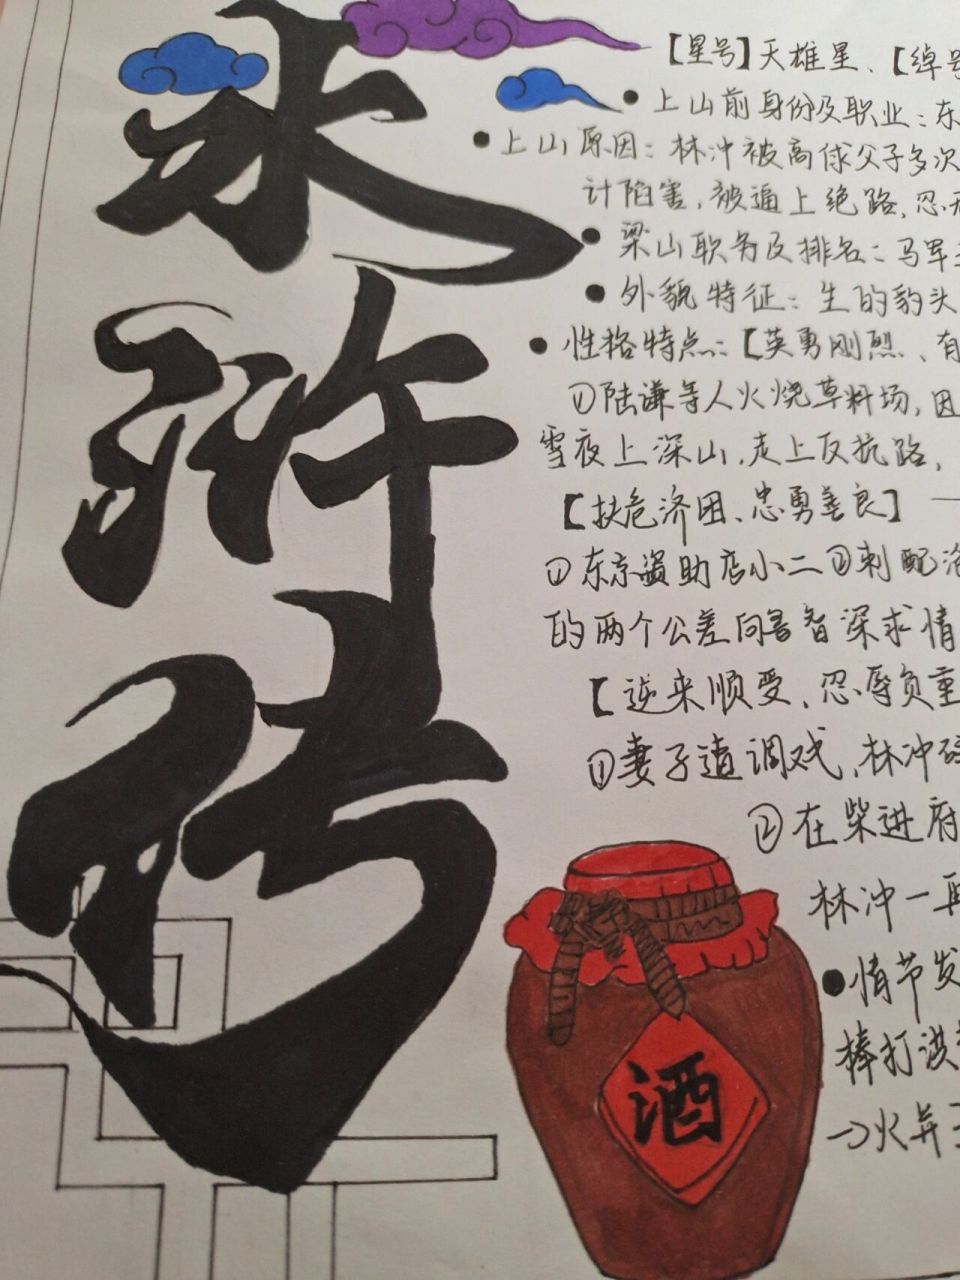 水浒传
【星号】天雄星、【绰号
上山前身份及职业：东
上山原因：林冲被高俅父子多次
计陷害，被逼上绝路，忍无
梁山职务及排名：马军
外貌特征：生的豹头
性格特点：【英勇刚烈、有
①陆谦等人火烧草料场，因
雪夜上深山，走上反抗路，
【扶危济困、忠勇善良】
①东京资助店小二②刺配
的两个公差向鲁智深求情
【逆来顺受、忍辱负重
①妻子遭调戏，林冲
②在柴进府
林冲一再
情节发
棒打洪
→火弃
酒